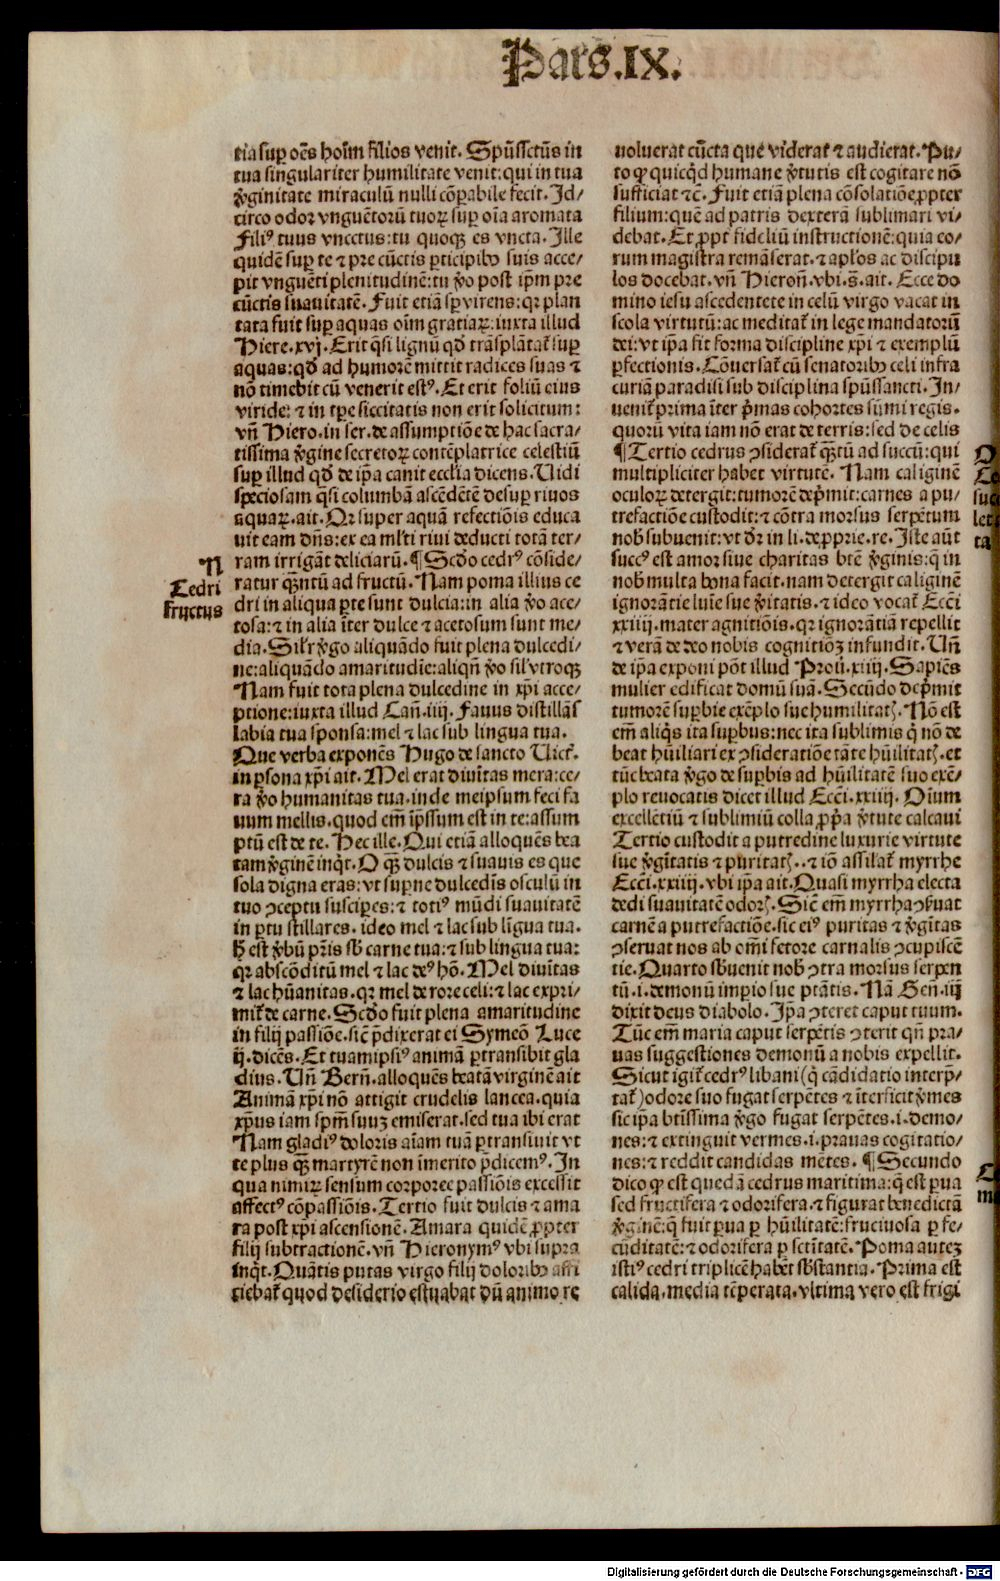 Pars.IX.
tia sup oēs hoīm filios venit. Spūssctūs in
tua singulariter humilitate venit: qui in tua
v̄ginitate miraculū nulli cōpabile fecit. Id/
circo odor vnguētorū tuoꝝ sup oīa aromata
Filiꝰ tuus vncctus: tu quoqꝫ es vncta. Ille
quidē sup te ⁊ pre cūctis pticipibꝰ suis acce/
pit vnguēti plenitudinē: tu v̄o post ip̄m pre
cūctis suauitatē. Fuit etiā sp virens: qr plan
tata fuit sup aquas oīm gratiaꝝ: iuxta illud
Hiere. xvij. Erit q̄si lignū qd̄ trāsplātat᷑ sup
aquas: qd̄ ad humorē mittit radices suas ⁊
nō timebit cū venerit estꝰ. Et erit foliū eius
viride: ⁊ in tpe siccitatis non erit solicitum:
vn̄ Hiero. in ser. de assumptiōe de hac sacra/
tissima v̄gine secretoꝝ contēplatrice celestiū
sup illud qd̄ de ip̄a canit eccl̄ia dicens. Uidi
speciosam q̄si columbā ascēdētē desup riuos
aquaꝝ. ait. Qr super aquā refectiōis educa
uit eam dn̄s: ex ea ml̄ti riui deducti totā ter/
ram irrigāt deliciarū. ¶ Scd̄o cedrꝰ cōside/
ratur qꝫntū ad fructū. Nam poma illius ce
dri in aliqua pte sunt dulcia: in alia v̄o ace/
tosa: ⁊ in alia īter dulce ⁊ acetosum sunt me/
dia. Sil̄r v̄go aliquādo fuit plena dulcedi/
ne: aliquādo amaritudīe: aliqn̄ v̄o sil̄ vtroqꝫ
Nam fuit tota plena dulcedine in xp̄i acce/
ptione: iuxta illud Can̄. iiij. Fauus distillās
labia tua sponsa: mel ⁊ lac sub lingua tua.
Que verba exponēs Hugo de sancto Uict᷑.
in psona xp̄i ait. Mel erat diuītas mera: ce/
ra v̄o humanitas tua. inde meipsum feci fa
uum mellis. quod em̄ ip̄ssum est in te: assum
ptū est de te. Hec ille. Qui etiā alloquēs bea
tam v̄ginē inq̄t. O qꝫ dulcis ⁊ suauis es que
sola digna eras: vt supne dulcedīs osculū in
tuo ↄceptu suscipes: ⁊ totiꝰ mūdi suauitatē
in ptu stillares. ideo mel ⁊ lac sub līgua tua.
h̄ est v̄bū pr̄is sb̄ carne tua: ⁊ sub lingua tua:
qr abscōditū mel ⁊ lac deꝰ hō. Mel diuītas
⁊ lac hūanitas. qr mel de rore celi: ⁊ lac expri/
mit᷑ de carne. Scd̄o fuit plena amaritudine
in filij passiōe. sic̄ p̄dixerat ei Symeō Luce
ij. dicēs. Et tuamipsiꝰ animā ptransibit gla
dius. Un̄ Bern̄. alloquēs beatā virginē ait
Animā xp̄i nō attigit crudelis lancea. quia
xp̄us iam spm̄ suuꝫ emiserat. sed tua ibi erat
Nam gladiꝰ doloris aīam tuā ptransiuit vt
te plus qꝫ martyrē non īmerito p̄dicemꝰ. In
qua nimiꝝ sensum corporee passiōis excessit
affectꝰ cōpassiōis. Tertio fuit dulcis ⁊ ama
ra post xp̄i ascensionē. Amara quidē ꝓpter
filij subtractionē. vn̄ Hieronymꝰ vbi supra
inq̄t. Quātis putas virgo filij doloribꝰ affi
ciebat᷑ quod desiderio estuabat dū animo re
N
Cedri
fructus
uoluerat cūcta que viderat ⁊ audierat. Pu/
to ꝙ quicq̄d humane v̄tutis est cogitare nō
sufficiat ⁊c̄. Fuit etiā plena cōsolatiōe ꝓpter
filium: quē ad patris dexterā sublimari vi/
debat. Et ꝓpt᷑ fideliū instructionē: quia eo/
rum magistra remāserat. ⁊ apl̄os ac discipu
los docebat. vn̄ Hieron̄. vbi. s̄. ait. Ecce do
mino iesu ascedentete in celū virgo vacat in
scola virtutū: ac meditat᷑ in lege mandatorū
dei: vt ip̄a fit forma discipline xp̄i ⁊ exemplū
pfectionis. Cōuersat᷑ cū senatoribꝰ celi infra
curiam paradisi sub disciplina spūssancti. In/
uenit᷑ prima īter p̄mas cohortes sūmi regis.
quorū vita iam nō erat de terris: sed de celis
¶ Tertio cedrus ↄsiderat᷑ qꝫtū ad succū: qui
multipliciter habet virtutē. Nam caliginē
oculoꝝ detergit: tumorē dep̄mit: carnes a pu/
trefactiōe custodit: ⁊ cōtra morsus serpētum
nob̄ subuenit: vt dr̄ in li. de ꝓprie. re. Iste aūt
succꝰ est amor siue charitas btē v̄ginis: q̄ in
nob̄ multa bona facit. nam detergit caliginē
ignorātie luīe sue v̄itatis. ⁊ ideo vocat᷑ Ecc̄i
xxiiij. mater agnitiōis. qr ignorātiā repellit
⁊ verā de deo nobis cognitiōꝫ infundit. Un̄
de ip̄a exponi pōt illud Prou̇. xiiij. Sapiēs
mulier edificat domū suā. Secūdo dep̄mit
tumorē supbie exēplo sue humilitatꝭ. Nō est
em̄ aliq̄s ita supbus: nec ita sublimis q̄ nō de
beat hūiliari ex ↄsideratiōe tāte hūilitatꝭ. et
tūc beata v̄go de supbis ad hūilitatē suo exē/
plo reuocatis dicet illud Ecc̄i. xxiiij. Oīum
excellētiū ⁊ sublimiū colla ꝓp̄a v̄tute calcaui
Tertio custodit a putredine luxurie virtute
sue v̄gītatis ⁊ puritatꝭ. . ⁊ iō assilat᷑ myrrhe
Ecc̄i. xxiiij. vbi ip̄a ait. Quasi myrrha electa
dedi suauitatē odorꝭ. Sic̄ em̄ myrrha ↄs̄uat
carnē a putrefactiōe. sic eiꝰ puritas ⁊ v̄gītas
ↄseruat nos ab om̄i fetore carnalis ↄcupiscē
tie. Quarto sb̄uenit nob̄ ↄtra morsus serpen
tū. i. demonū imp̄io sue ptātis. Nā Gen̄. iij
dixit deus diabolo. Ip̄a ↄteret caput tuum.
Tūc em̄ maria caput serpētis ↄterit qn̄ pra/
uas suggestiones demonū a nobis expellit.
Sicut igit᷑ cedrꝰ libani (q̄ cādidatio interp̄/
tat᷑) odore suo fugat serpētes ⁊ īterficit v̄mes
sic ip̄a btīssima v̄go fugat serpētes. i. demo/
nes: ⁊ extinguit vermes. i. prauas cogitatio/
nes: ⁊ reddit candidas mētes. ¶ Secundo
dico ꝙ est quedā cedrus maritima: q̄ est pua
sed fructifera ⁊ odorifera. ⁊ figurat benedictā
v̄ginē: q̄ fuit pua p hūilitatē: fructuosa p fe/
cūditatē: ⁊ odorifera p sctītatē. Poma auteꝫ
istiꝰ cedri triplicē habēt sb̄stantia. Prima est
calida. media tēperata. vltima vero est frigi
Digitalisierung gefördert durch die Deutsche Forschungsgemeinschaft - DFG